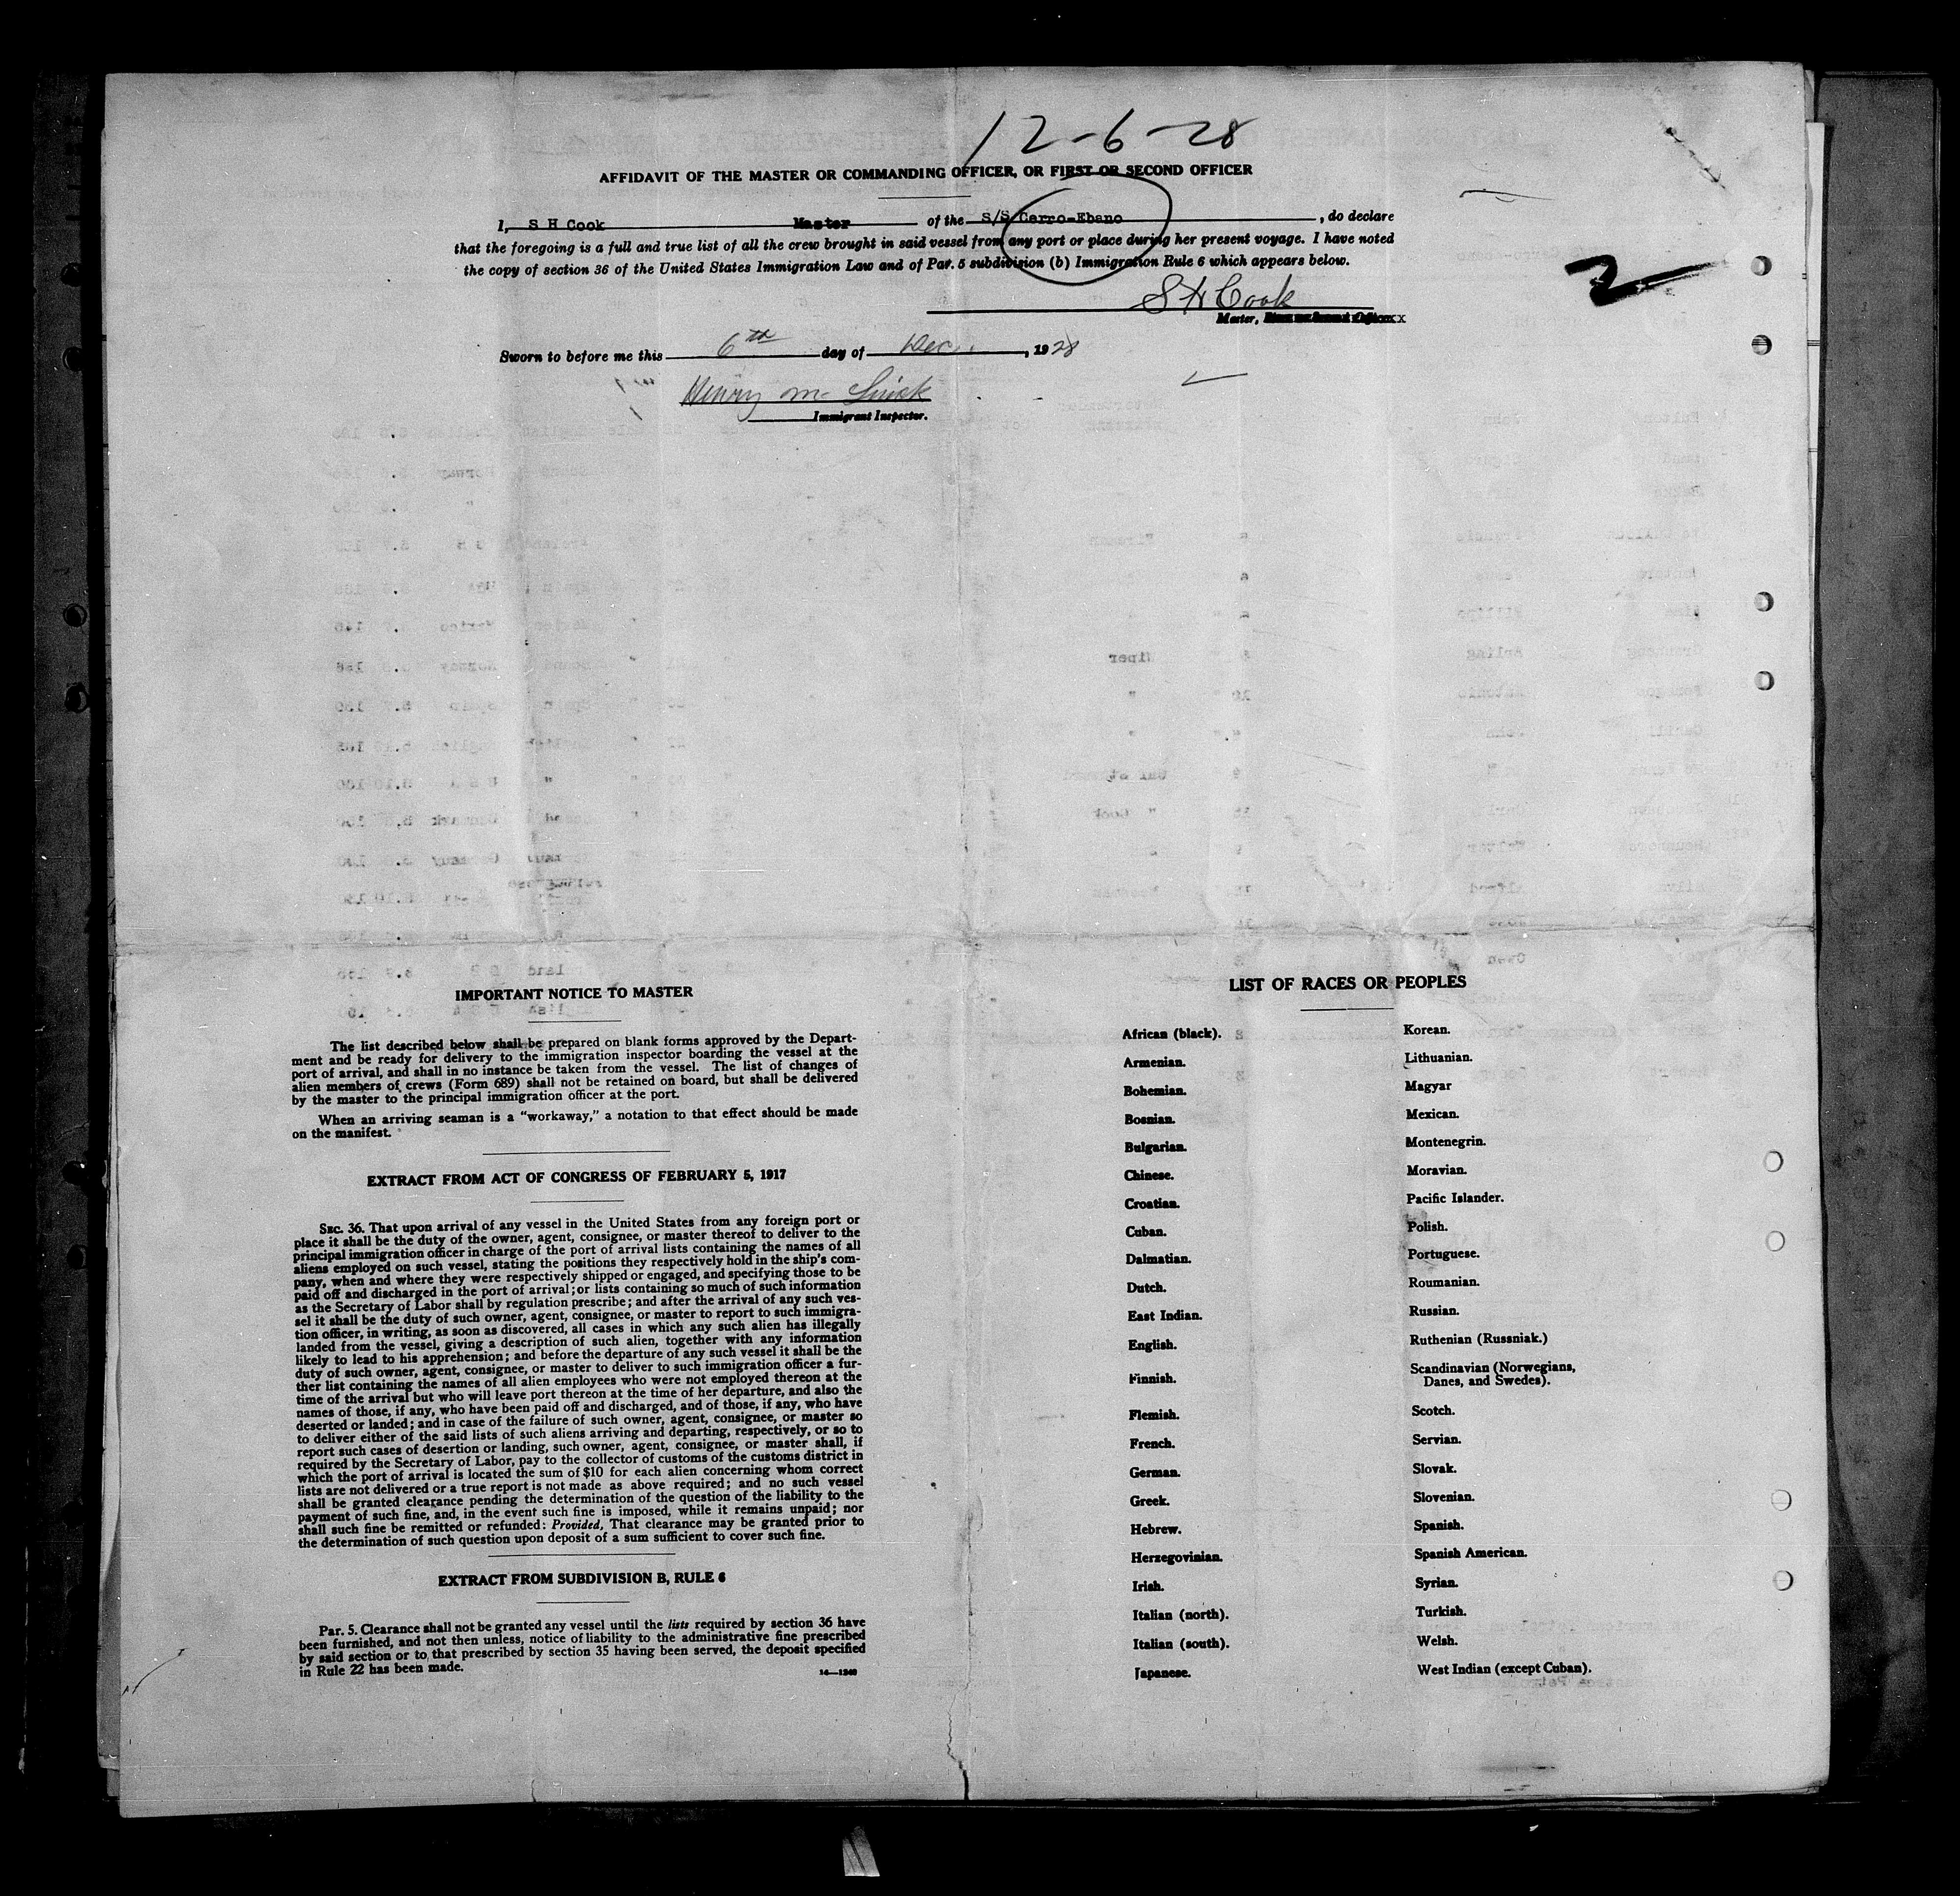 12-6-28
AFFIDAVIT OF THE MASTER OR COMMANDING OFFICER, OR FIRST OR SECOND OFFICER
I, S H Cook Master of the S/S Cerro-Ebano, do declare
that the foregoing is a full and true list of all the crew brought in said vessel from any port or place during her present voyage. I have noted
the copy of section 36 of the United States Immigration Law and of Par. 5 subdivision (b) Immigration Rule 6 which appears below.
2
S H Cook
Master,
Sworn to before me this 6th day of Dec., 1928
Henry
Immigrant Inspector.
IMPORTANT NOTICE TO MASTER
The list described below shall be prepared on blank forms approved by the Depart-
ment and be ready for delivery to the immigration inspector boarding the vessel at the
port of arrival, and shall in no instance be taken from the vessel. The list of changes of
alien members of crews (Form 689) shall not be retained on board, but shall be delivered
by the master to the principal immigration officer at the port.
When an arriving seaman is a "workaway," a notation to that effect should be made
on the manifest.
EXTRACT FROM ACT OF CONGRESS OF FEBRUARY 5, 1917
SEC. 36. That upon arrival of any vessel in the United States from any foreign port or
place it shall be the duty of the owner, agent, consignee, or master thereof to deliver to the
principal immigration officer in charge of the port of arrival lists containing the names of all
aliens employed on such vessel, stating the positions they respectively hold in the ship's com-
pany, when and where they were respectively shipped or engaged, and specifying those to be
paid off and discharged in the port of arrival; or lists containing so much of such information
as the Secretary of Labor shall by regulation prescribe; and after the arrival of any such ves-
sel it shall be the duty of such owner, agent, consignee, or master to report to such immigra-
tion officer, in writing, as soon as discovered, all cases in which any such alien has illegally
landed from the vessel, giving a description of such alien, together with any information
likely to lead to his apprehension; and before the departure of any such vessel it shall be the
duty of such owner, agent, consignee, or master to deliver to such immigration officer a fur-
ther list containing the names of all alien employees who were not employed thereon at the
time of the arrival but who will leave port thereon at the time of her departure, and also the
names of those, if any, who have been paid off and discharged, and of those, if any, who have
deserted or landed; and in case of the failure of such owner, agent, consignee, or master so
to deliver either of the said lists of such aliens arriving and departing, respectively, or so to
report such cases of desertion or landing, such owner, agent, consignee, or master shall, if
required by the Secretary of Labor, pay to the collector of customs of the customs district in
which the port of arrival is located the sum of $10 for each alien concerning whom correct
lists are not delivered or a true report is not made as above required; and no such vessel
shall be granted clearance pending the determination of the question of the liability to the
payment of such fine, and, in the event such fine is imposed, while it remains unpaid; nor
shall such fine be remitted or refunded: Provided, That clearance may be granted prior to
the determination of such question upon deposit of a sum sufficient to cover such fine.
EXTRACT FROM SUBDIVISION B, RULE 6
Par. 5. Clearance shall not be granted any vessel until the lists required by section 36 have
been furnished, and not then unless, notice of liability to the administrative fine prescribed
by said section or to that prescribed by section 35 having been served, the deposit specified
in Rule 22 has been made.
14—1240
LIST OF RACES OR PEOPLES
African (black).
Armenian.
Bohemian.
Bosnian.
Bulgarian.
Chinese.
Croatian.
Cuban.
Dalmatian.
Dutch.
East Indian.
English.
Finnish.
Flemish.
French.
German.
Greek.
Hebrew.
Herzegovinian.
Irish.
Italian (north).
Italian (south).
Japanese.
Korean.
Lithuanian.
Magyar
Mexican.
Montenegrin.
Moravian.
Pacific Islander.
Polish.
Portuguese.
Roumanian.
Russian.
Ruthenian (Russniak.)
Scandinavian (Norwegians,
Danes, and Swedes).
Scotch.
Servian.
Slovak.
Slovenian.
Spanish.
Spanish American.
Syrian.
Turkish.
Welsh.
West Indian (except Cuban).